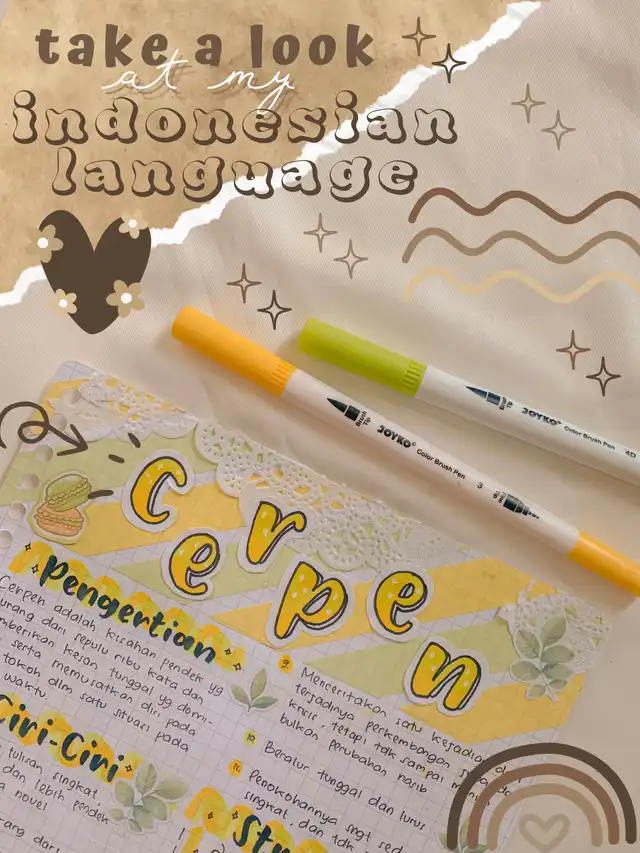 take a look
at my
indonesian
language
Brush Tip
JOYKO® Color Brush Pen
Brush Tip
JOYKO® Color Brush Pen 3
Cerpen
Pengertian
Cerpen adalah kisahan pendek yg
kurang dari sepulu ribu kata dan
memberikan kesan tunggal yg domi-
serta memusatkan diri pada
tokoh dlm satu situasi pada
waktu.
Ciri-Ciri
tulisan singkat,
dan lebih pendek
novel
9. Menceritakan satu kejadian
terjadinya perkembangan
krisis, tetapi tdk sampai
bulkan perubahan nasib
10. Beralur tunggal dan lurus
11. Penokohannya sngt sed
singkat, dan tdk